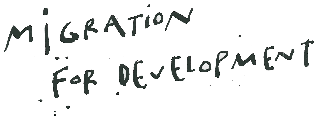 MiGRATiON
FOR DEVELOPMENT